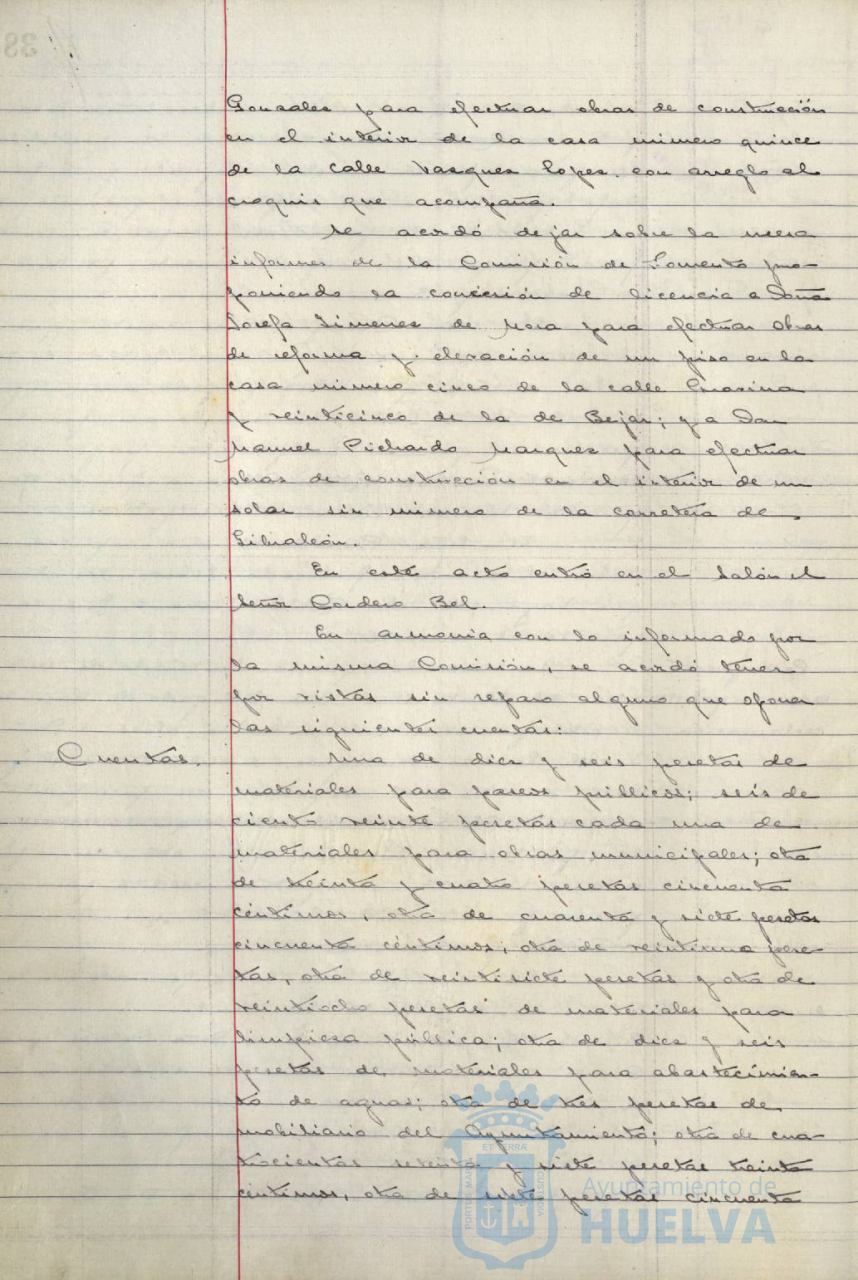 Gonzalez para efectuar obras de construcción
en el interior de la casa número quince
de la calle Vazquez Lopez, con arreglo al
croquis que acompaña.
Se acordó dejar sobre la mesa
informes de la Comisión de Fomento pro-
poniendo la concesión de licencia a Doña
Josefa Jimenez de Mora para efectuar obras
de reforma y elevación de un piso en la
casa número cinco de la calle Marina
y veinticinco de la de Bejar; y a Don
Manuel Pichardo Marquez para efectuar
obras de construcción en el interior de un
solar sin número de la carretera de
Gibraleón.
En este acto entró en el Salón el
Señor Cordero Bel.
En armonia con lo informado por
la misma Comisión, se acordó tener
por vistas sin reparo alguno que oponer
las siguientes cuentas:
Cuentas.
Una de diez y seis pesetas de
materiales para paseos públicos; seis de
ciento veinte pesetas cada una de
materiales para obras municipales; otra
de treinta y cuatro pesetas cincuenta
céntimos, otra de cuarenta y siete pesetas
cincuenta céntimos, otra de veintiuna pese-
tas, otra de veintisiete pesetas y otra de
veintiocho pesetas de materiales para
limpieza pública; otra de diez y seis
pesetas de materiales para abastecimien-
to de aguas; otra de tres pesetas de
mobiliario del Ayuntamiento; otra de cua-
trocientas setenta y siete pesetas treinta
céntimos, otra de siete pesetas cincuenta
Ayuntamiento de
HUELVA